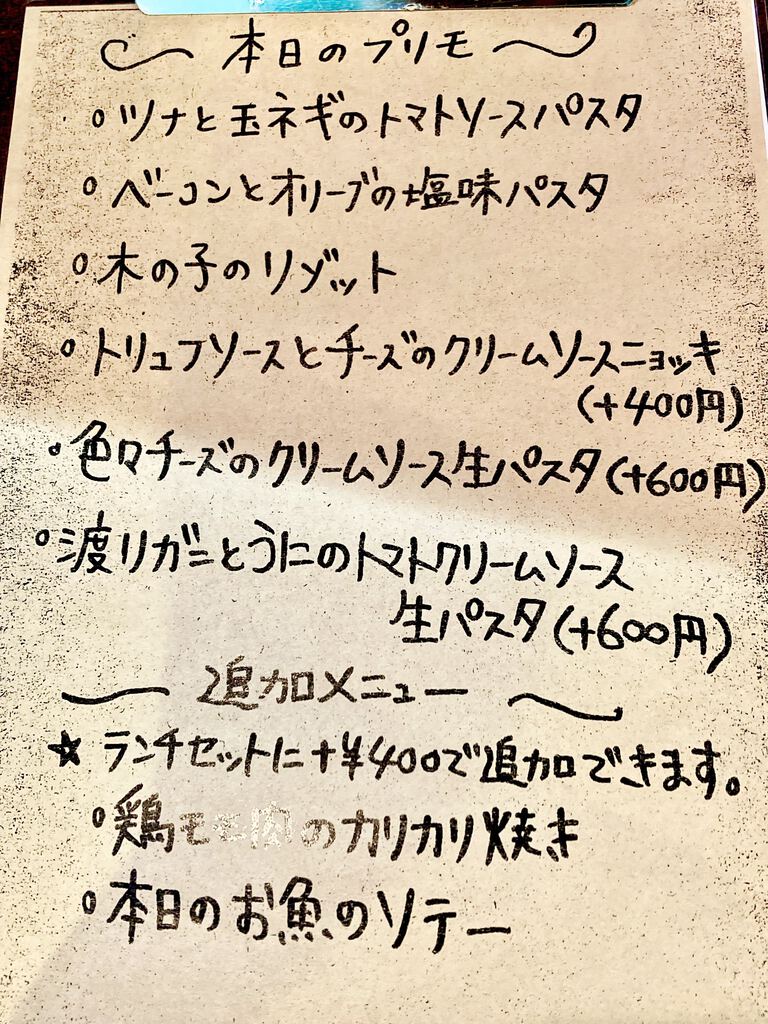 本日のプリモ
○ツナと玉ネギのトマトソースパスタ
○ベーコンとオリーブの塩味パスタ
○木の子のリゾット
○トリュフソースとチーズのクリームソースニョッキ
(+400円)
○色々チーズのクリームソース生パスタ(+600円)
○渡リガニとうにのトマトクリームソース
生パスタ(+600円)
追加メニュー
★ランチセットに+¥400で追加できます。
○鶏モモ肉のカリカリ焼き
○本日のお魚のソテー